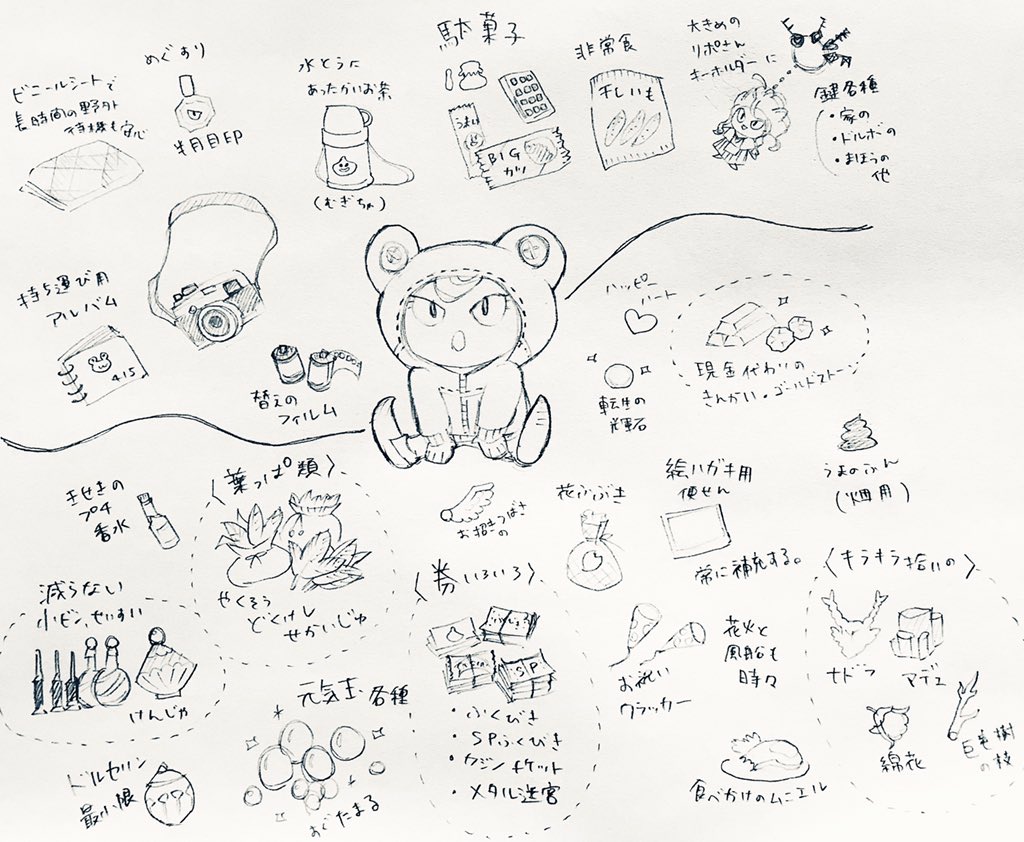 駄菓子
非常食
大きめの
リポさん
キーホルダーに
めぐすり
水とうに
あったかいお茶
ビニールシートで
長時間の野外
待機も安心
鍵各種
・家の
・ドルボの
・まほうの
他
うまい
BIG
カツ
干しいも
(むぎちゃ)
持ち運び用
アルバム
415
替えの
フィルム
ハッピー
ハート
現金代わりの
きんかい・ゴールドストーン
転生の
輝石
うまのふん
(畑用)
きせきの
プチ
香水
〈葉っぱ類〉
やくそう
どくけし
せかいじゅ
お招きつばさ
の
花ふぶき
絵ハガキ用
便せん
常に補充する。
減らない
小ビン、せいすい
けんじゃ
〈券いろいろ〉
SP
・ふくびき
・SPふくびき
・カジノチケット
・メタル迷宮
お祝い
クラッカー
花火と
風船も
時々
〈キラキラ拾いの〉
ナドラ
マデュ
綿花
巨竜樹
の枝
元気玉各種
おぐたまる
ドルセリン
最小限
食べかけのムニエル